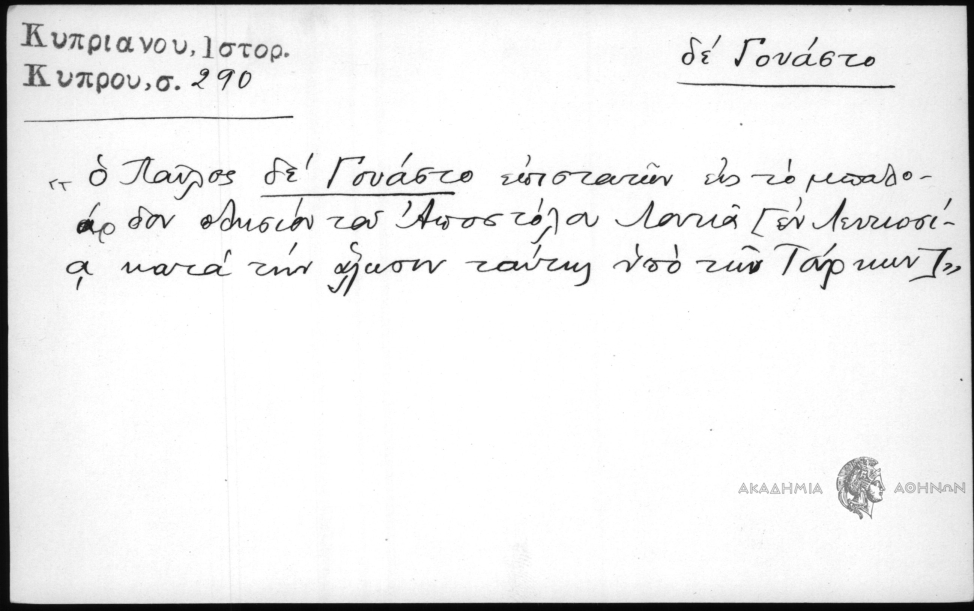 Κυπριανου, Ιστορ.
Κυπρου, σ. 290
δέ Γουάστο
“ὁ Παῦλος δέ Γουάστο ἐπιστατῶν εἰς τὸ μπαλο-
άρδον πλησίον τοῦ Ἀποστόλου Λουκᾶ [ἐν Λευκοσί-
ᾳ κατά τήν ἅλωσιν ταύτης ὑπὸ τῶν Τούρκων]”
ΑΚΑΔΗΜΙΑ ΑΘΗΝΩΝ